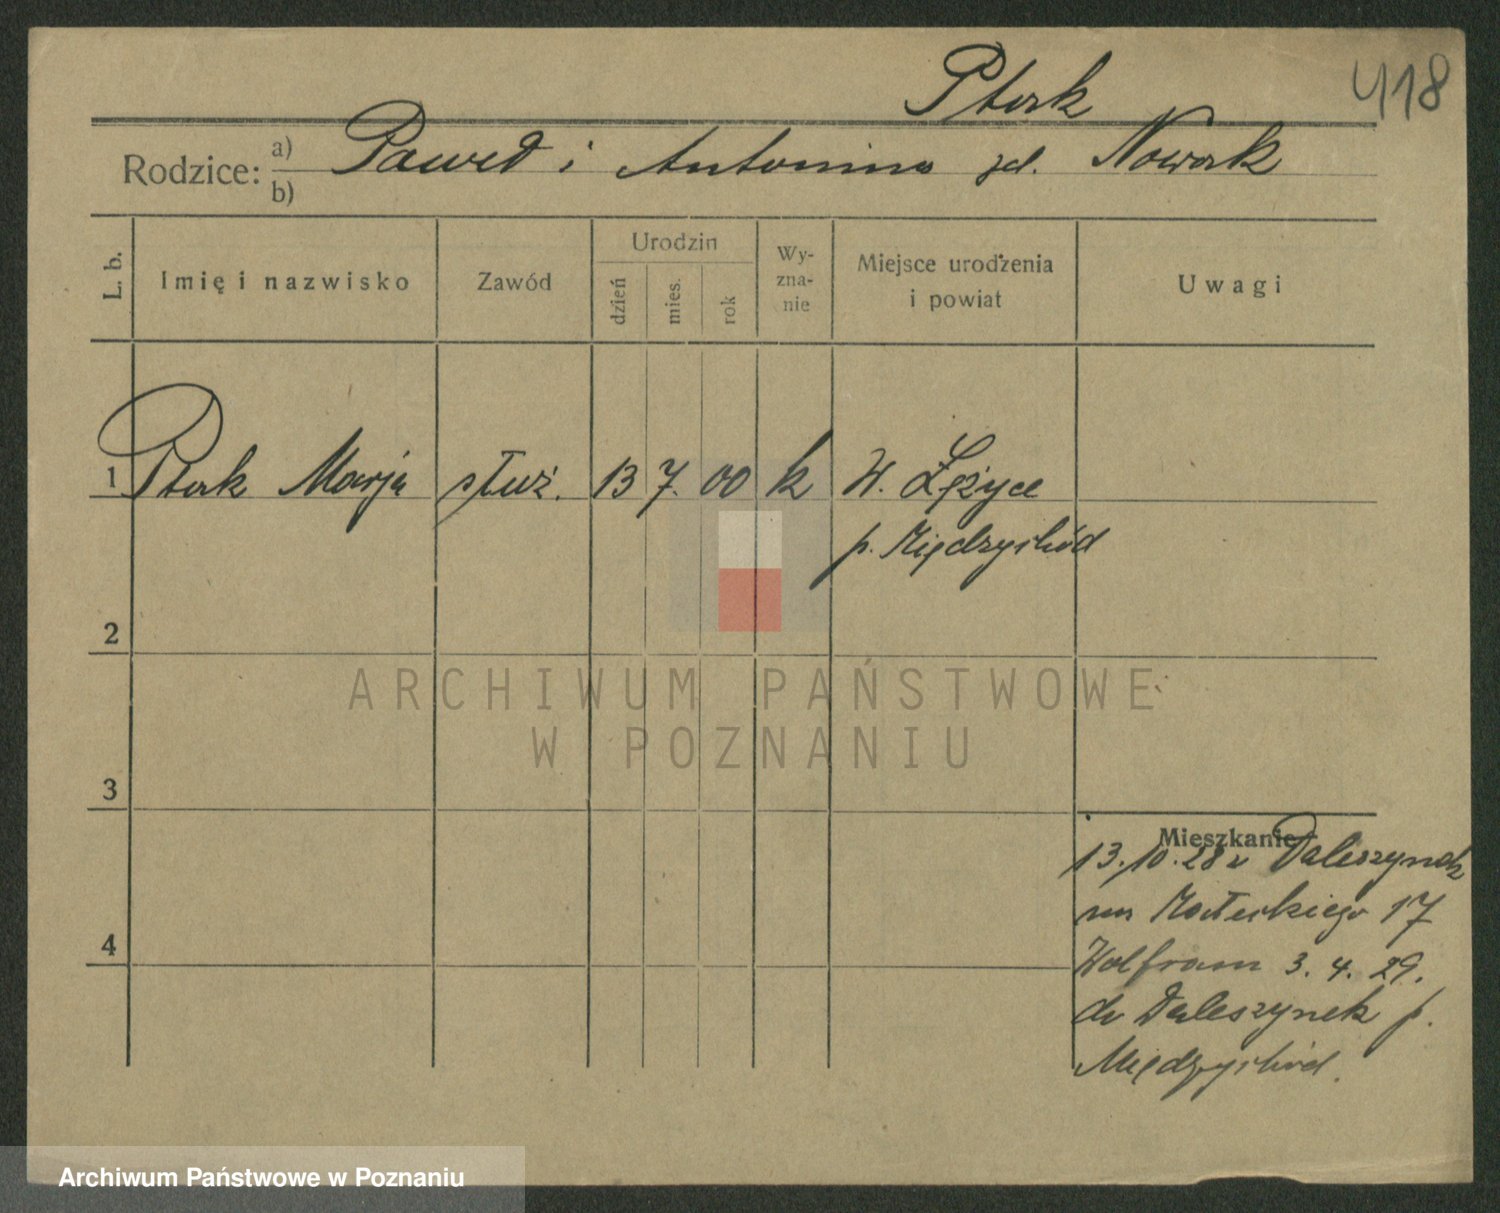 Ptak
418
Rodzice: a) Paweł i Antonina zd. Nowak
b)
L. b.
Imię i nazwisko
Zawód
Urodzin
dzień
mies.
rok
Wy-
zna-
nie
Miejsce urodzenia
i powiat
Uwagi
1 Ptak Marja służ. 13 7. 00 k W. Łężyce
p. Międzychód
2
ARCHIWUM PAŃSTWOWE
W POZNANIU
3
Mieszkanie
13.10.28 z Daleszynek
na Małeckiego 17
4
Wolfram 3. 4. 29.
do Daleszynek p.
Międzychód.
Archiwum Państwowe w Poznaniu